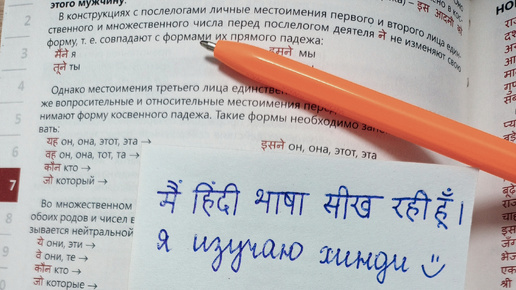 этого мужчину.
В конструкциях с послелогами личные местоимения первого и второго лица един-
ственного и множественного числа перед послелогом деятеля ने не изменяют свою
форму, т. е. совпадают с формами их прямого падежа:
मैंने я мы
तूने ты
Однако местоимения третьего лица
же вопросительные и относительные местоимения
нимают форму косвенного падежа. Такие формы необходимо
вать:
यह он, она, этот, эта → इसने он, она, этот, эта
वह он, она, тот, та →
कौन кто →
जो который →
7
मैं हिंदी भाषा सीख रही हूँ।
я изучаю хинди
Во множественном
обоих родов и чисел в
зывается нейтральной
ये они, эти →
वे они, те →
कौन кто →
जो которые →